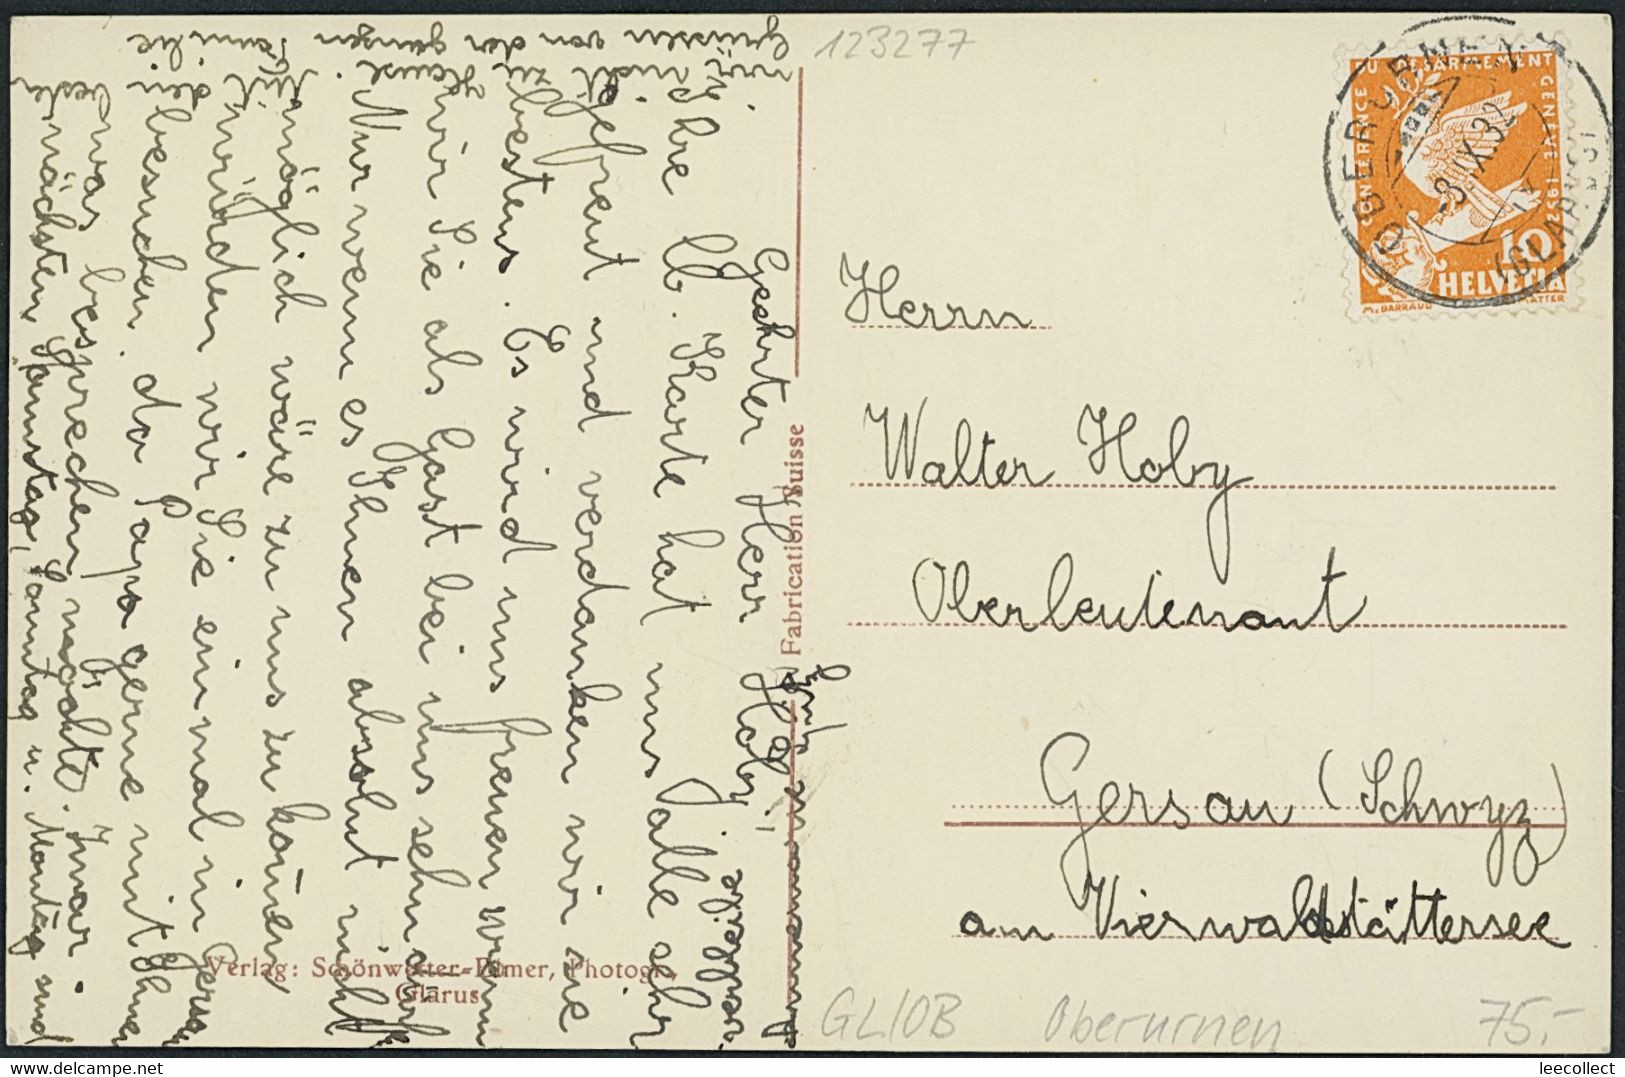 123277
CONFERENCE DU DESARMEMENT GENÈVE 1932
10
HELVETIA
M. BARRAUD
MATTER
OBERURNEN
(GLARUS)
-8.IX.32
Herrn
Walter Hoby
Oberleutenant
Gersau (Schwyz)
am Vierwaldstättersee
Fabrication Suisse
Verlag: Schönwetter-Elmer, Photogr.,
Glarus
Geehrter Herr Hoby,
Ihre lb. Karte hat uns alle sehr
gefreut und verdanken wir sie
bestens. Es wird uns freuen wenn
wir Sie als Gast bei uns sehn
Nur wenn es Ihnen absolut nicht
möglich wäre zu uns zu kommen
würden wir Sie einmal in Gersau
besuchen, da Papa gerne mit Ihnen
was besprechen möchte. Zwar
nächsten Samstag, Sonntag u. Montag sind
wir nicht zu Hause. Mit den besten
Grüssen von der ganzen Familie
GL10B
Oberurnen
75.-
leecollect